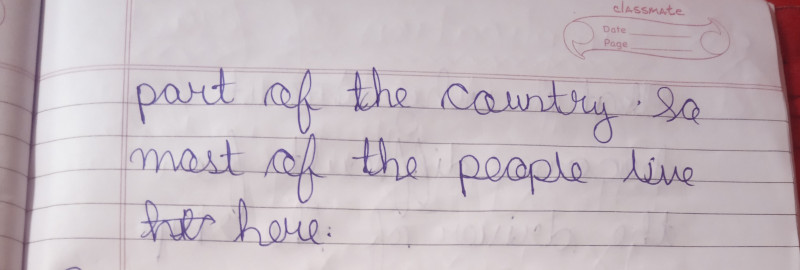 classmate
Date
Page
part of the country. So
most of the people live
here.